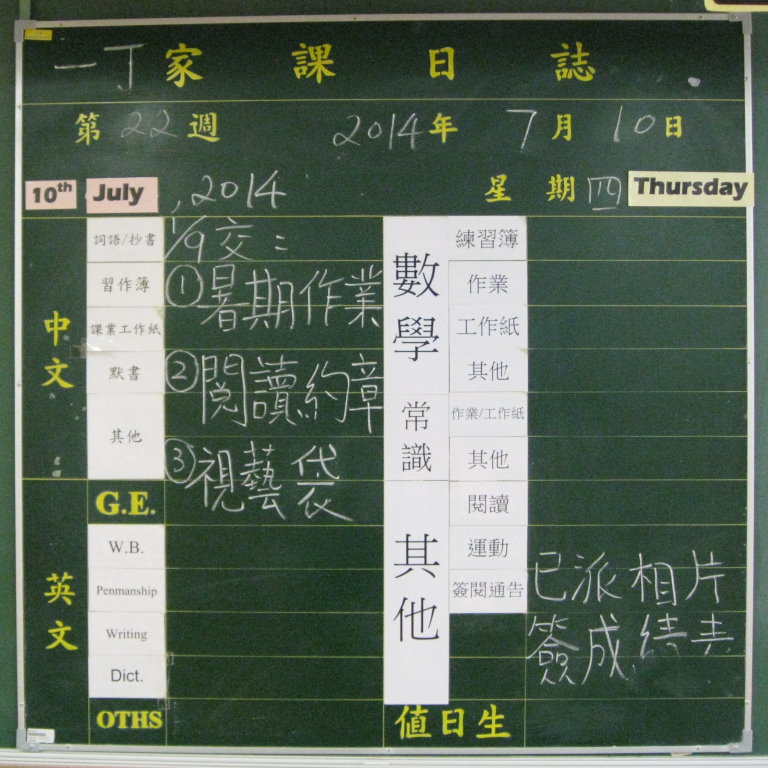 一丁家課日誌
第22週 2014年7月10日
10th July, 2014 星期四 Thursday
中文
詞語/抄書 1/9交:
習作簿 ①暑期作業
課業工作紙
默書 ②閱讀約章
其他 ③視藝袋
G.E.
英文
W.B.
Penmanship
Writing
Dict.
OTHS
數學
練習簿
作業
工作紙
其他
常識
作業/工作紙
其他
其他
閱讀
運動 已派相片
簽閱通告 簽成績表
值日生